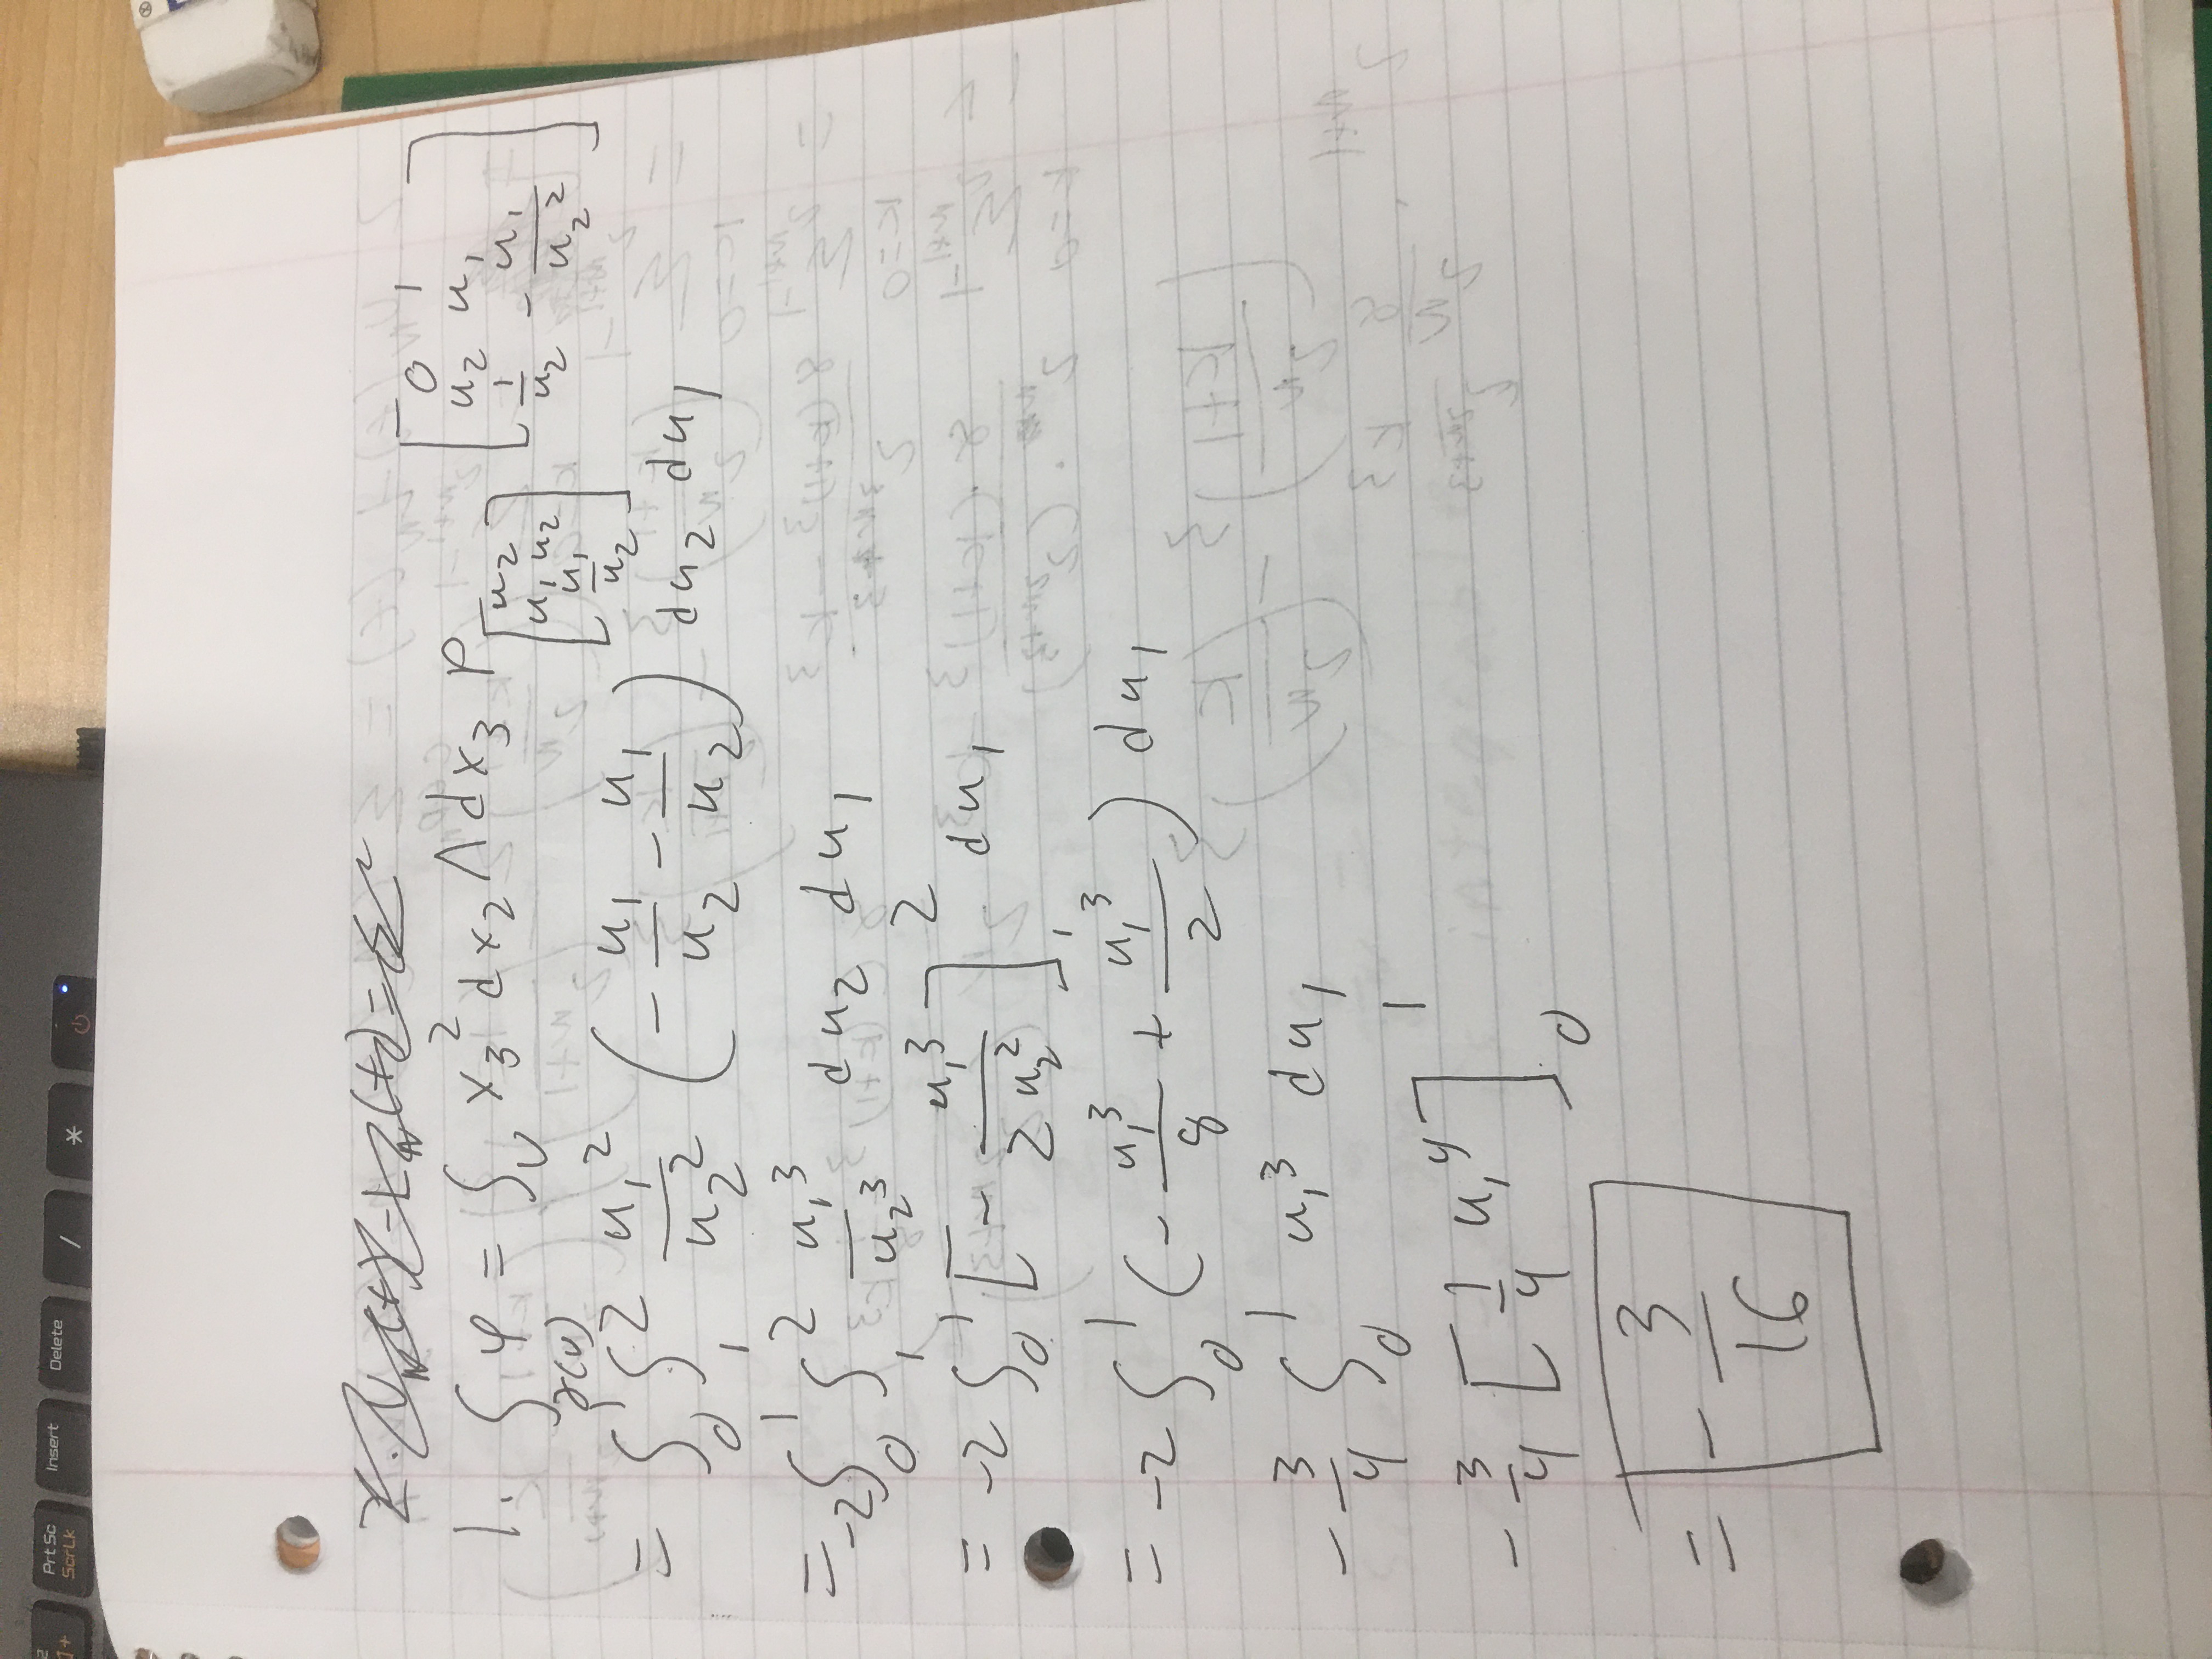 Prt Sc
ScrLk
Insert
Delete
/
*
1. ∫_γ(U) φ = ∫_U x₃² dx₂ ∧ dx₃ P_[u₂, u₁u₂, u₁/u₂] [0 1; u₂ u₁; 1/u₂ -u₁/u₂²]
= ∫₀¹ ∫₁² u₁²/u₂² (-u₁/u₂ - u₁/u₂) du₂ du₁
= -2∫₀¹ ∫₁² u₁³/u₂³ du₂ du₁
= -2 ∫₀¹ [-u₁³/2u₂²]₁² du₁
= -2 ∫₀¹ (-u₁³/8 + u₁³/2) du₁
-3/4 ∫₀¹ u₁³ du₁
-3/4 [1/4 u₁⁴]₀¹
= -3/16